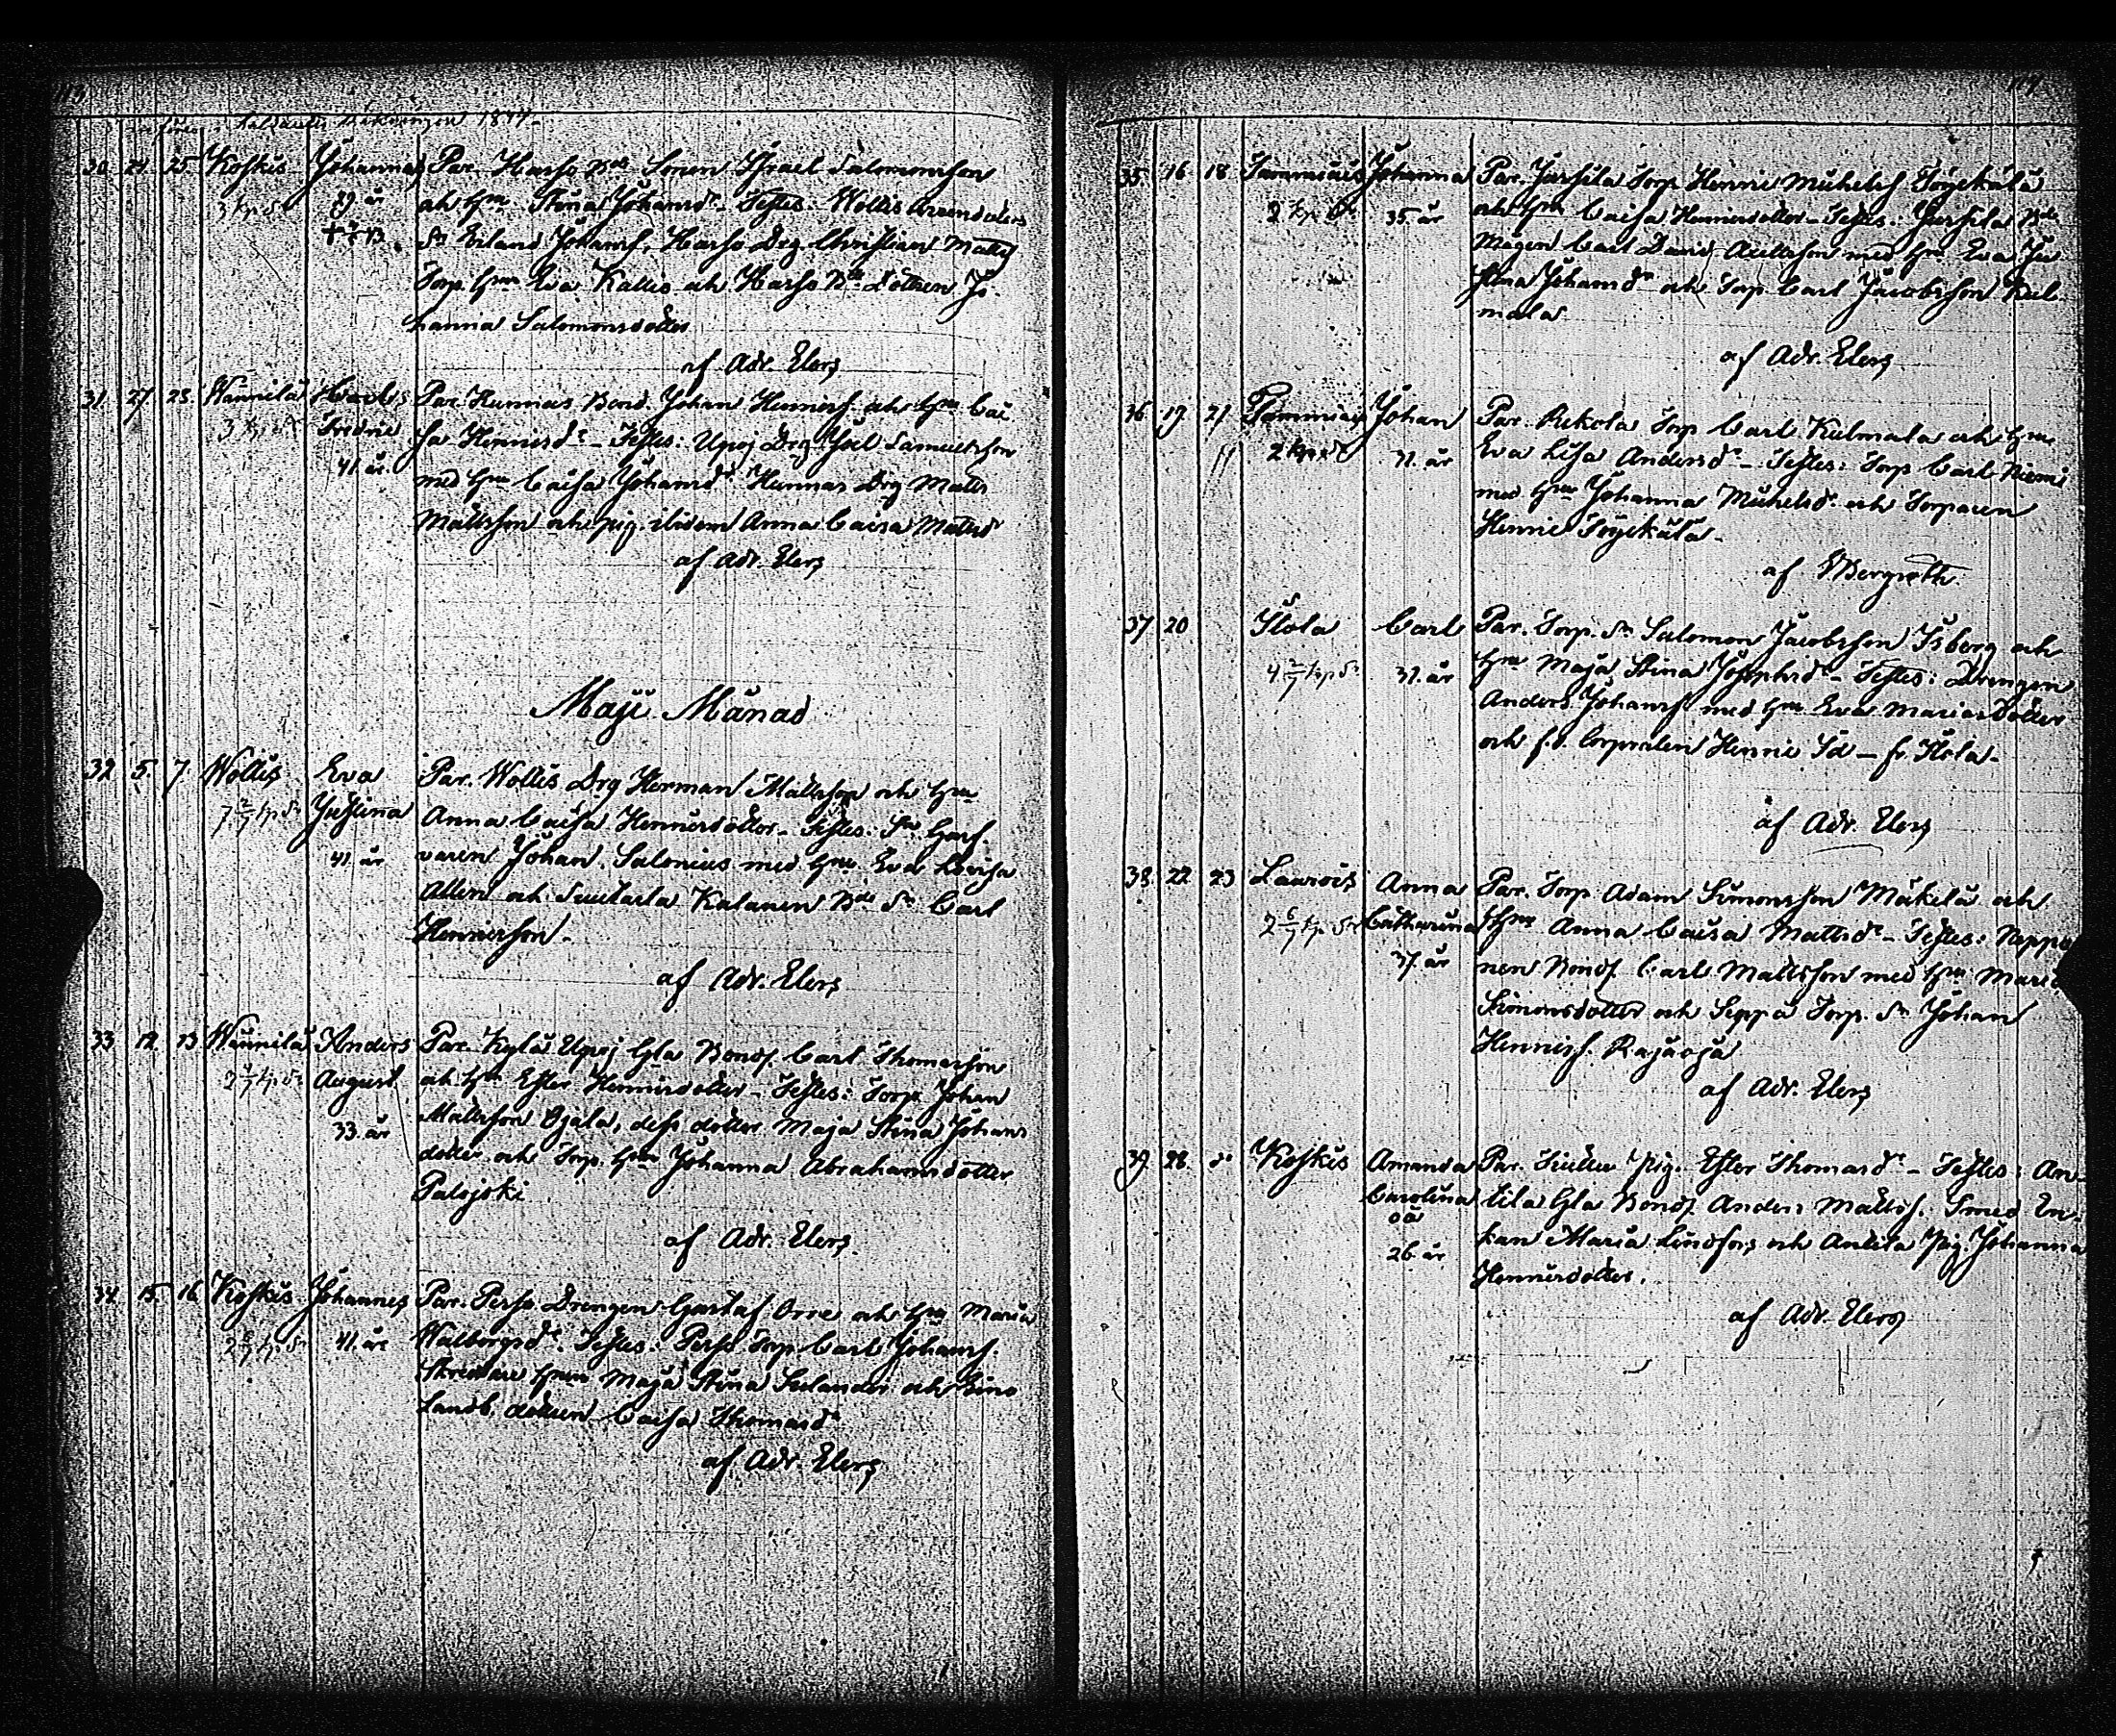 1844
30. 24. 25. Koskis Johannes Par. Harso Bde Sonen Israel Salomonsson
29 år och Hru Stina Johansdr – Testes: Wollis
Sn Erland Johanss, Harso Drg Christian Matts
Torp. Hru Eva Kallis och Harso Bde Dottren Jo-
hanna Salomonsdotter
af Adr. Elers
31. 27 28. Wännilä Carl Par. Hunnas Bond. Johan Henrics och Hru Cai-
Fredric sa Henricsdr – Testes: Upoj Drg Joel Samuelsson
41. år med Hru Caisa Johansdr Hunnas Drg Matts
Mattsson och pig. ibidem Anna Caisa Mattsdr
af Adr. Elers
Maji Månad
32. 5. 7. Wollis Eva Par. Wollis Drg Herman Mattsson och Hru
7 2/7 kp Sn Justina Anna Caisa Henricsdotter – Testes: Sn Garf-
41. år varen Johan Salonius med Hru Eva Lovisa
Allen och Kalanen Bde Sn Carl
Henricsson –
af Adr. Elers
33. 12. 13. Wännilä Anders Par. Kylä Upoj Gla Bonds. Carl Thomasson
August och Hru Ester Henricsdotter – Testes: Torp. Johan
33. år Mattsson Ojala, dess dotter Maja Stina Johans
dotter och Torp. Hru Johanna Abrahamsdotter
Palojoki
af Adr. Elers
34. 15. 16. Koskis Johannes Par. Perso Drengen Gustaf Orre och Hru Maria
41. år Walborgsdr. Testes: Perso Torp. Carl Johans.
Skreddare Hrun Maja Stina Selander och
Landb. dottren Caisa Thomasdr
af Adr. Elers
35. 16 18 Tammiais Johanna Par. Jussila Torp Henric Michels Töyekälä
35. år och Hru Caisa Henricsdotter – Testes: Jussila Bde
Magen Carl David med Hru Eva Ju
stina Johansdr och Torp. Carl Jacobsson Kul
mala.
af Adr. Elers
36 17. 21 Tammiais Johan Par. Rekola Torp Carl Kulmala och Hru
31. år Eva Lisa Andersdr – Testes: Torp Carl Niemi
med Hru Johanna Michelsdr och Torparen
Henric Töyekälä –
af Bergroth
37 20 Ilola Carl Par. Torp. Sn Salomon Jacobsson Isberg och
4 2/7 kp Sn 31. år Hru Maja Stina Josephsdr – Testes: Drengen
Anders Johans med Hru Eva Mariasdotter
och f.d. Corporalen Henric Id – fr. Ilola –
af Adr. Elers
38. 22. 23 Laurois Anna Par. Torp. Adam Simonsson Mäkelä och
2 6/7 kp Sn Catharina Hru Anna Caisa Mattsdr – Testes: Nappa
37. år nen Bonds. Carl Mattsson med Hru Maria
Simonsdotter och Seppä Torp. Sn Johan
Henricss. Rajaoja
af Adr. Elers
39. 28. do Koskis Amanda Par. Pig. Ester Thomasdr – Testes: An-
Carolina tila Gla Bonds. Anders Mattss. Smed En-
oä
26. år kan Maria Lindfors och Antila Pig. Johanna
Henricsdotter.
af Adr. Elers